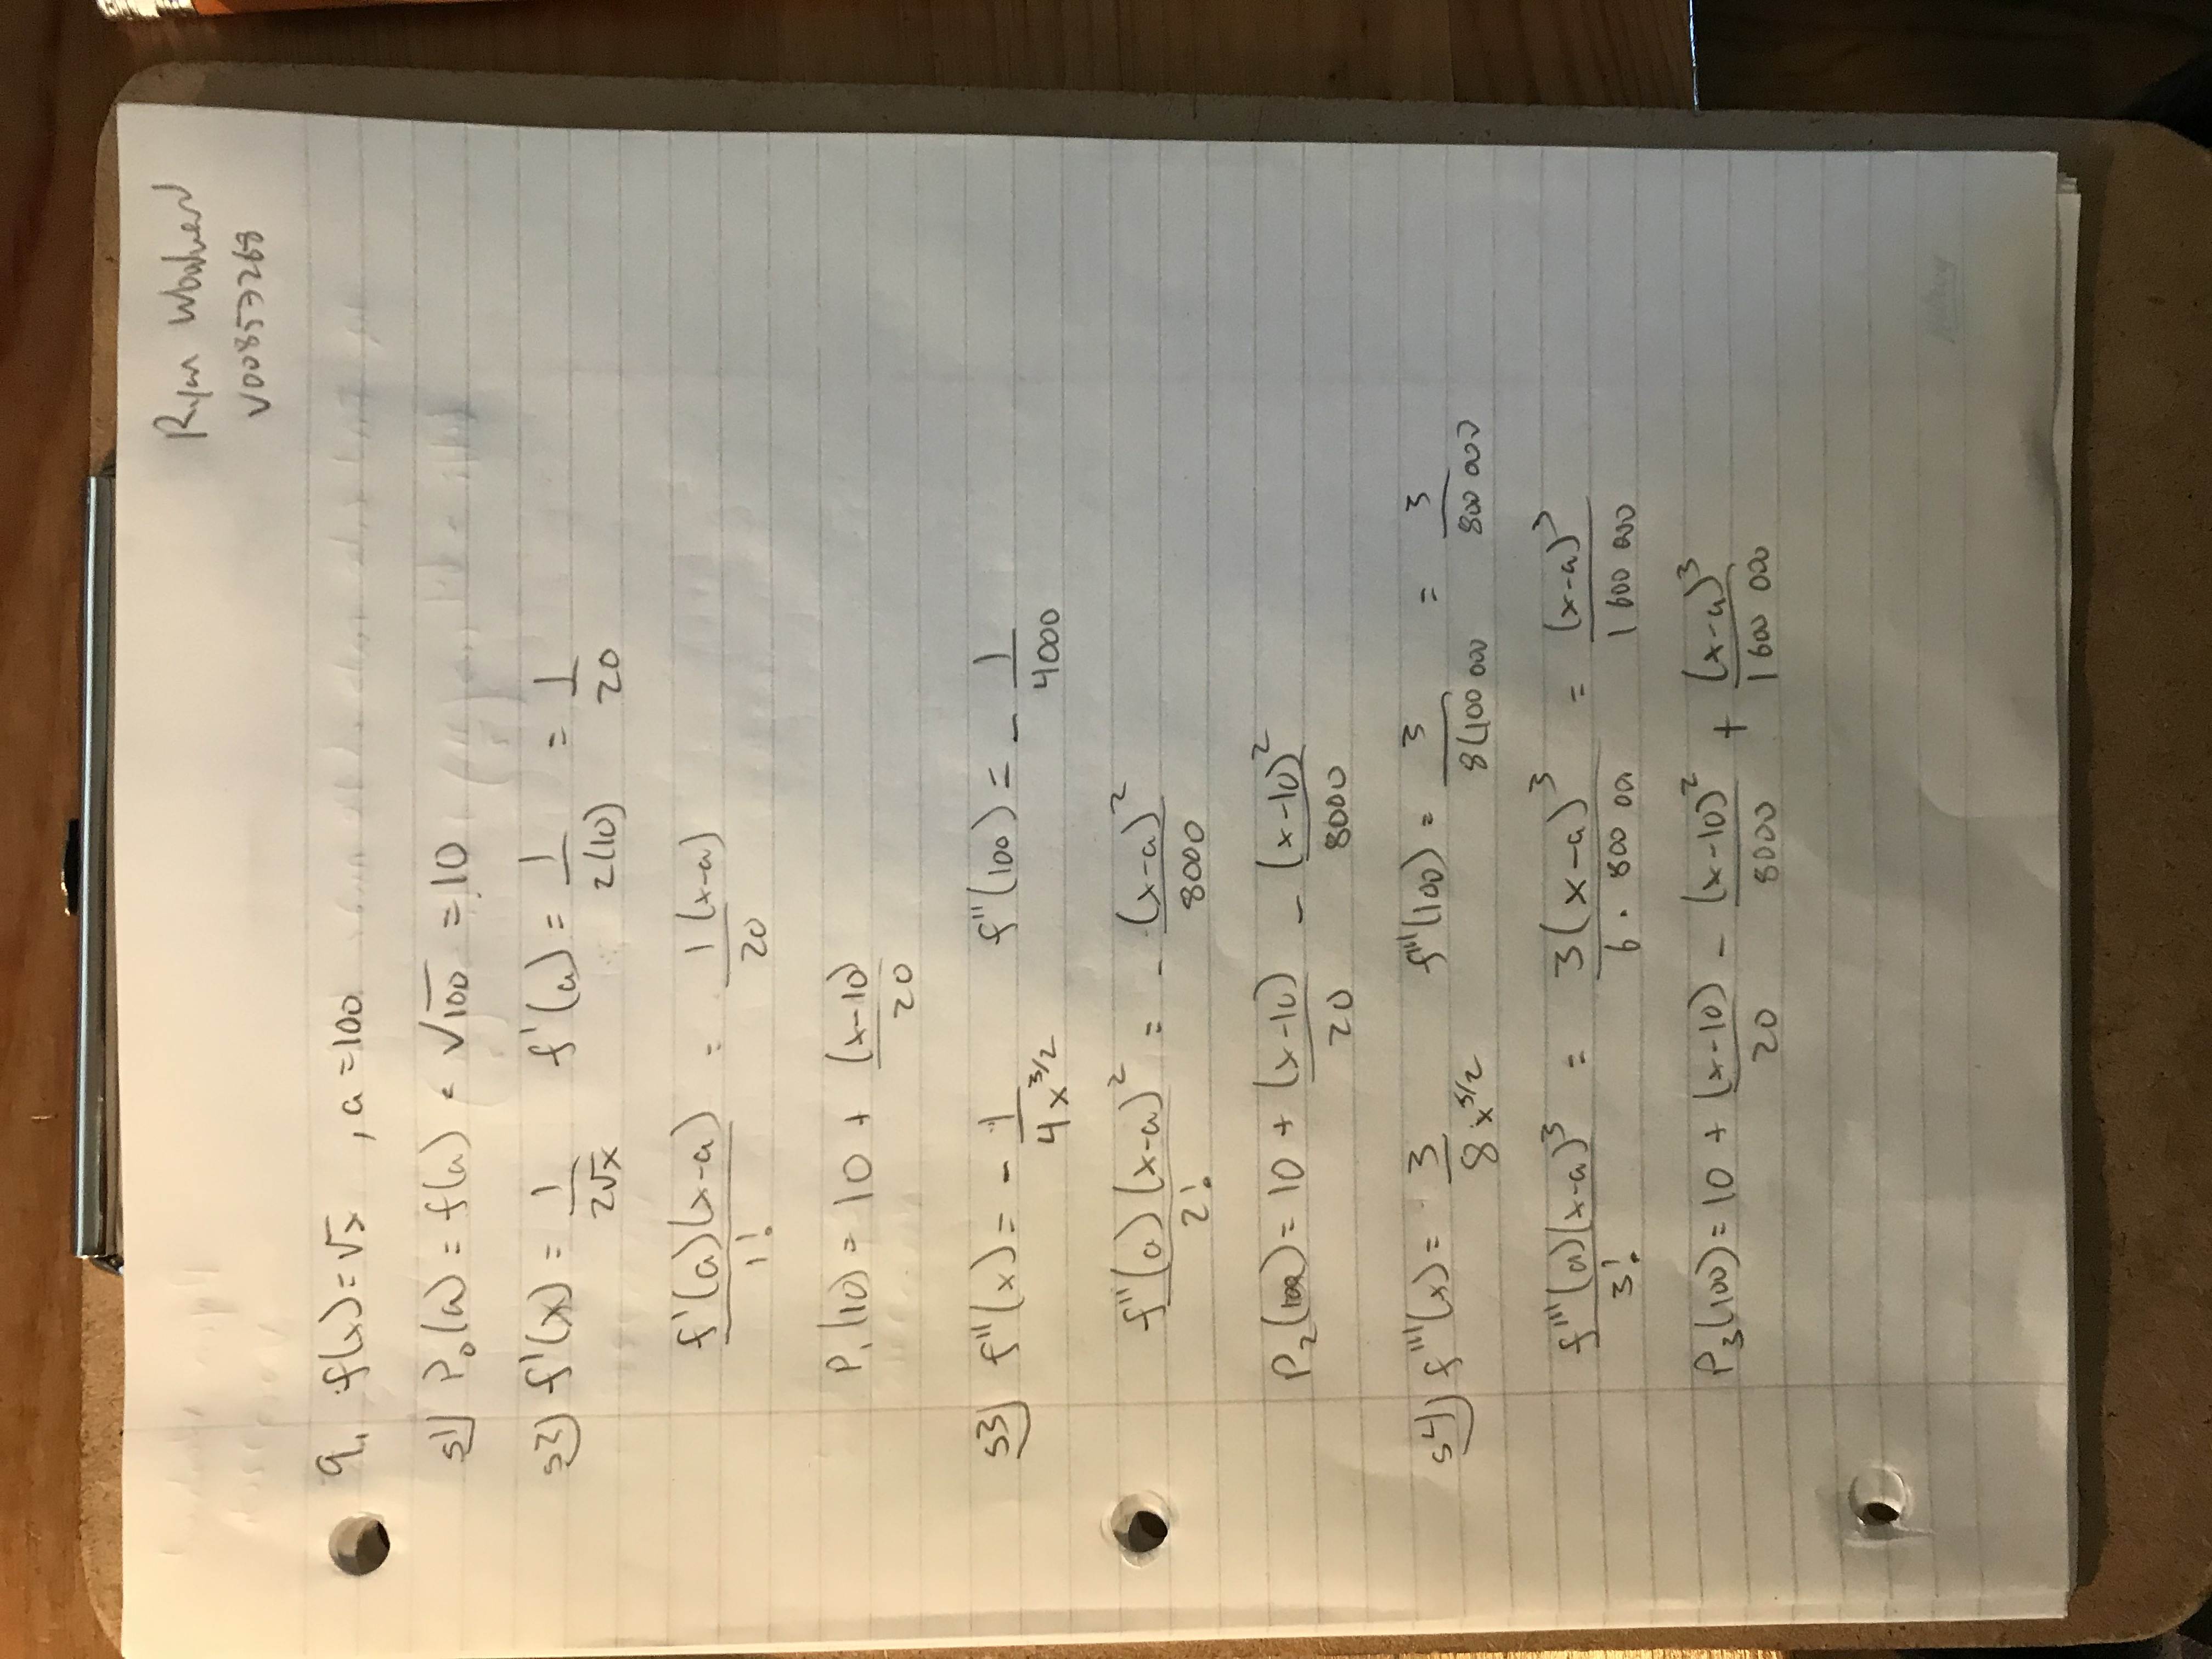 Ryan
V00853268
9. f(x)=√x , a=100
s1) P₀(a) = f(a) = √100 = 10
s2) f'(x) = 1/(2√x) f'(a) = 1/(2(10)) = 1/20
f'(a)(x-a)/1! = 1(x-a)/20
P₁(10) = 10 + (x-10)/20
s3) f''(x) = - 1/(4x^(3/2)) f''(100) = - 1/4000
f''(a)(x-a)²/2! = - (x-a)²/8000
P₂(100) = 10 + (x-10)/20 - (x-10)²/8000
s4) f'''(x) = 3/(8x^(5/2)) f'''(100) = 3/(8(100 000 = 3/800 000
f'''(a)(x-a)³/3! = 3(x-a)³/(6 · 800 000) = (x-a)³/1 600 000
P₃(100) = 10 + (x-10)/20 - (x-10)²/8000 + (x-a)³/1 600 000
Hilroy